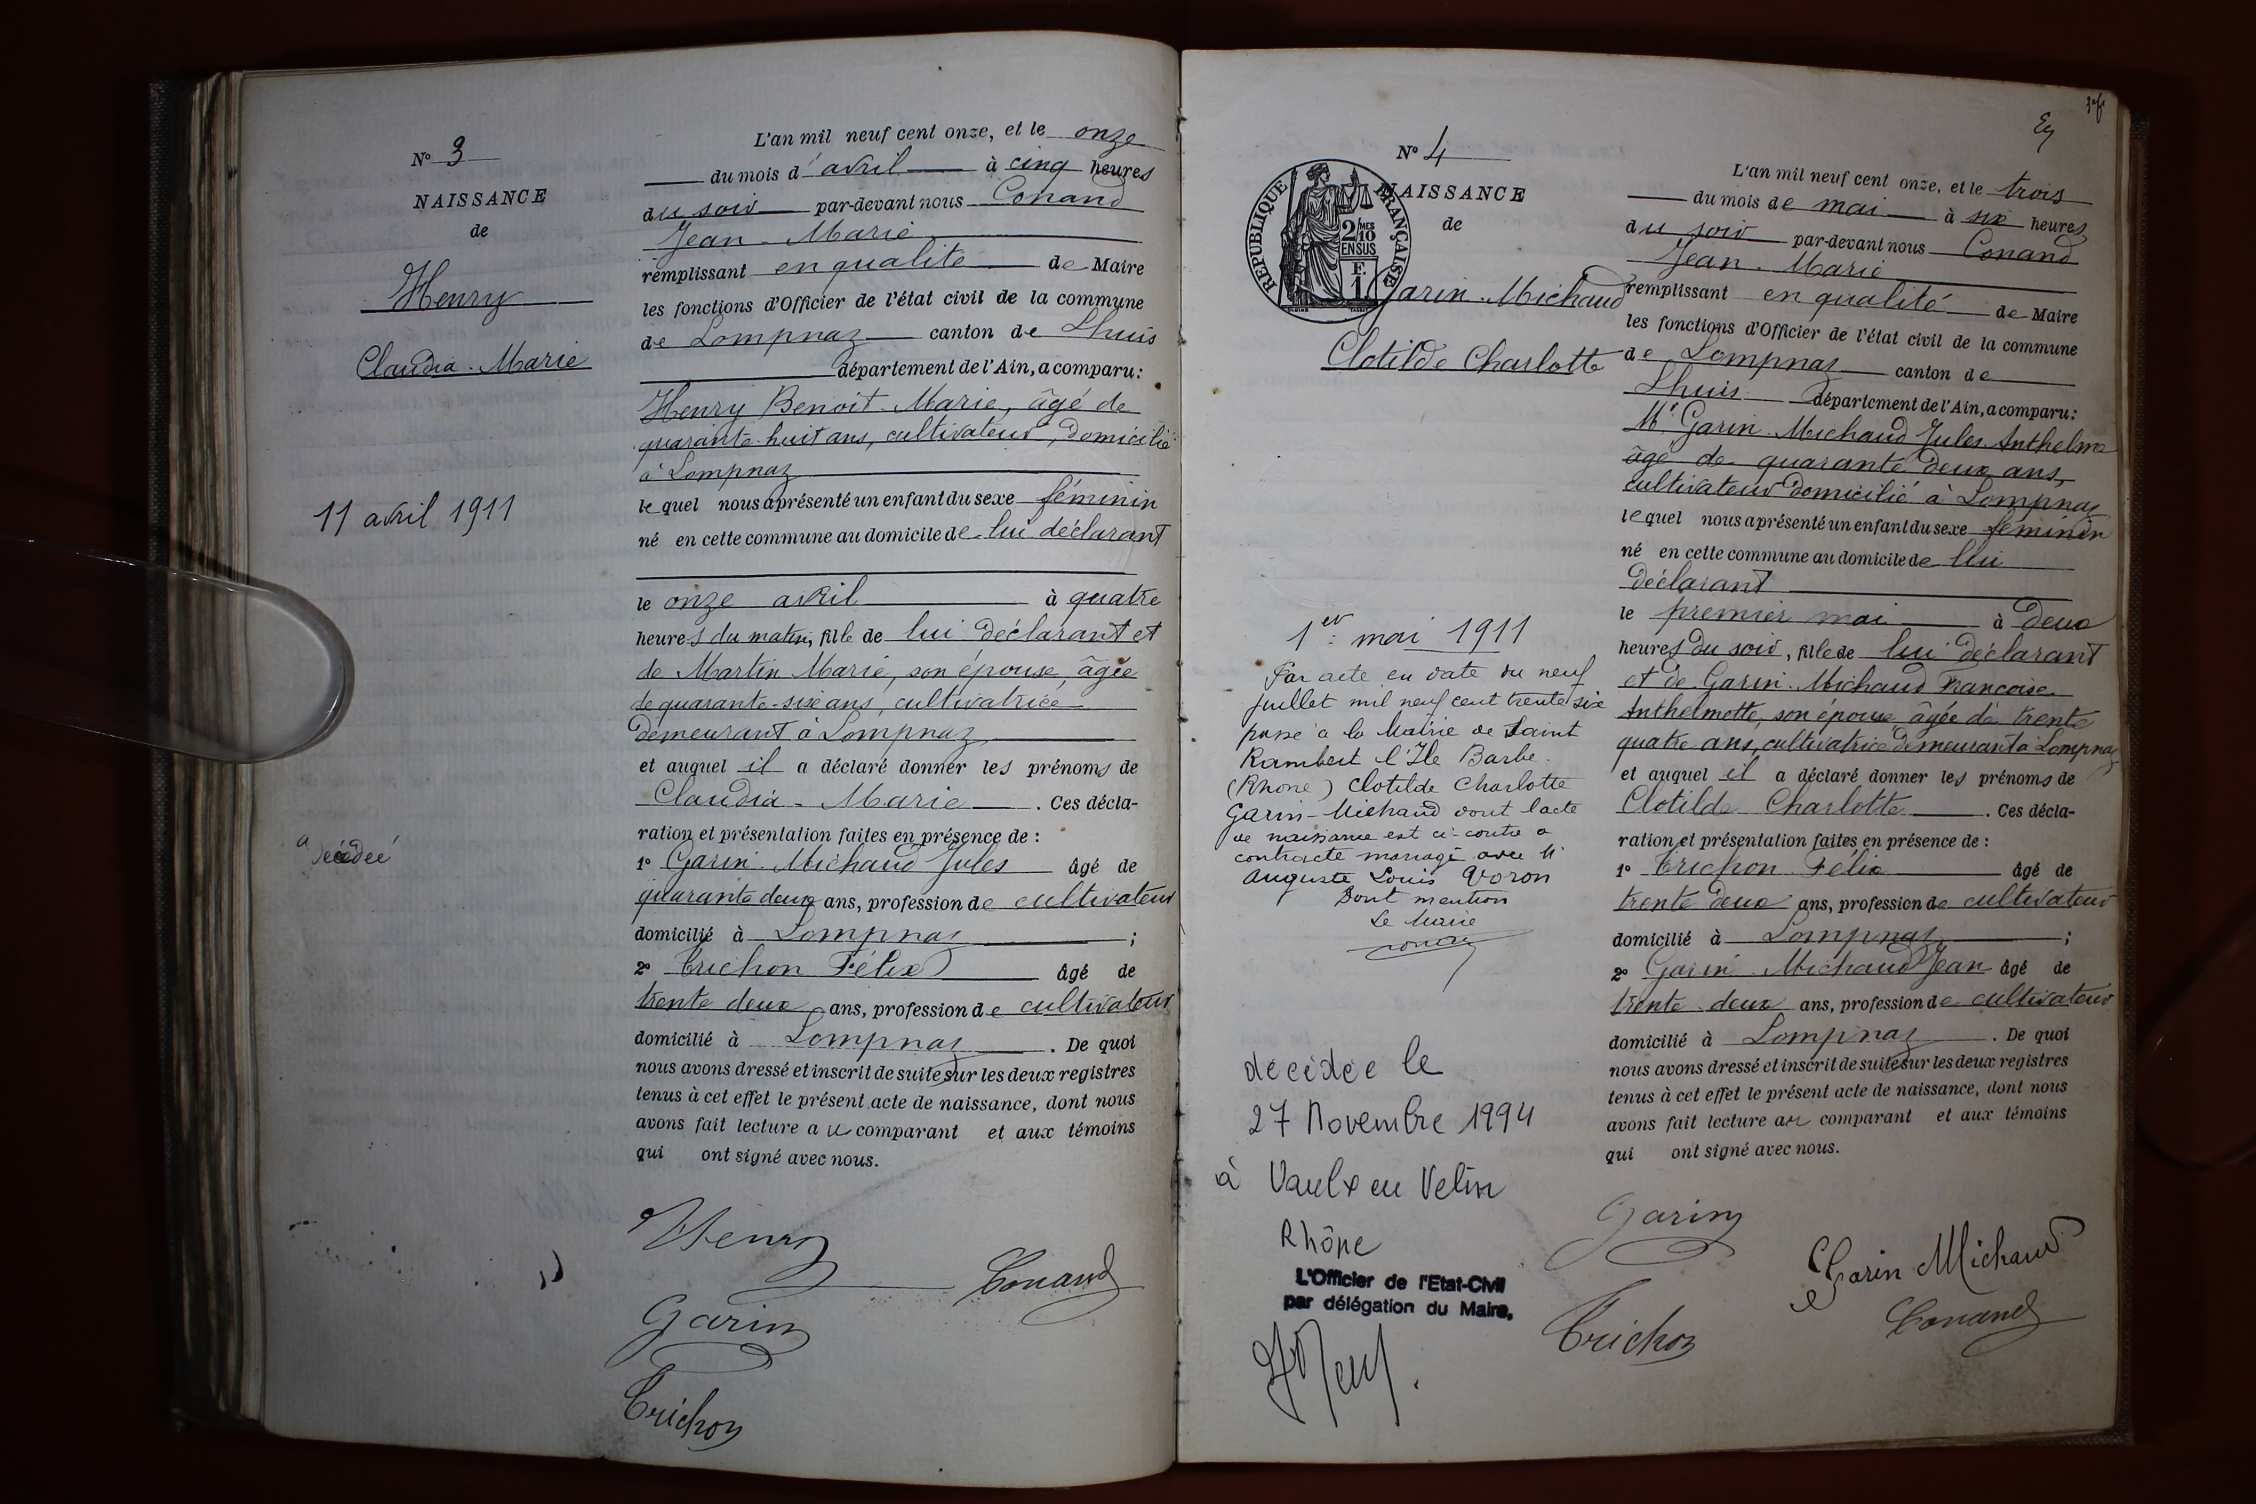 N° 3
NAISSANCE
de
Henry
Claudia - Marie
11 avril 1911
décédée
L'an mil neuf cent onze, et le onze
du mois d'avril à cinq heures
du soir par-devant nous Conand
Jean - Marie
remplissant en qualité de Maire
les fonctions d'Officier de l'état civil de la commune
de Lompnaz canton de Lhuis
département de l'Ain, a comparu:
Henry Benoit Marie, âgé de
quarante-huit ans, cultivateur, domicilié
à Lompnaz
lequel nous a présenté un enfant du sexe féminin
né en cette commune au domicile de lui déclarant
le onze avril à quatre
heures du matin, fille de lui déclarant et
de Martin Marie, son épouse, âgée
de quarante-six ans, cultivatrice
demeurant à Lompnaz
et auquel il a déclaré donner les prénoms de
Claudia - Marie. Ces décla-
ration et présentation faites en présence de :
1° Garin - Michaud Jules âgé de
quarante deux ans, profession de cultivateur
domicilié à Lompnaz ;
2° Trichon Félix âgé de
trente deux ans, profession de cultivateur
domicilié à Lompnaz. De quoi
nous avons dressé et inscrit de suite sur les deux registres
tenus à cet effet le présent acte de naissance, dont nous
avons fait lecture au comparant et aux témoins
qui ont signé avec nous.
Henry
Conand
Garin
Trichon
N° 4
NAISSANCE
de
RÉPUBLIQUE FRANÇAISE
2/10
EN SUS
F.
1
Garin - Michaud
Clotilde Charlotte
1er mai 1911
Par acte en date du neuf
juillet mil neuf cent trente six
passé à la Mairie de Saint
Rambert l'Ile Barbe
(Rhone) Clotilde Charlotte
Garin-Michaud dont l'acte
de naissance est ci-contre a
contracté mariage avec M
Auguste Louis Voron
Dont mention
Le Maire
Conand
décédée le
27 Novembre 1994
à Vaulx en Velin
Rhône
L'Officier de l'Etat-Civil
par délégation du Maire,
L'an mil neuf cent onze, et le trois
du mois de mai à six heures
du soir par-devant nous Conand
Jean - Marie
remplissant en qualité de Maire
les fonctions d'Officier de l'état civil de la commune
de Lompnaz canton de
Lhuis département de l'Ain, a comparu:
Mr Garin - Michaud Jules Anthelme
âgé de quarante deux ans,
cultivateur domicilié à Lompnaz
lequel nous a présenté un enfant du sexe féminin
né en cette commune au domicile de lui
déclarant
le premier mai à deux
heures du soir, fille de lui déclarant
et de Garin - Michaud Françoise
Anthelmette, son épouse, âgée de trente
quatre ans, cultivatrice demeurant à Lompnaz
et auquel il a déclaré donner les prénoms de
Clotilde Charlotte. Ces décla-
ration et présentation faites en présence de :
1° Trichon Félix âgé de
trente deux ans, profession de cultivateur
domicilié à Lompnaz ;
2° Garin - Michaud Jean âgé de
trente-deux ans, profession de cultivateur
domicilié à Lompnaz. De quoi
nous avons dressé et inscrit de suite sur les deux registres
tenus à cet effet le présent acte de naissance, dont nous
avons fait lecture au comparant et aux témoins
qui ont signé avec nous.
Garin
Garin Michaud
Trichon
Conand